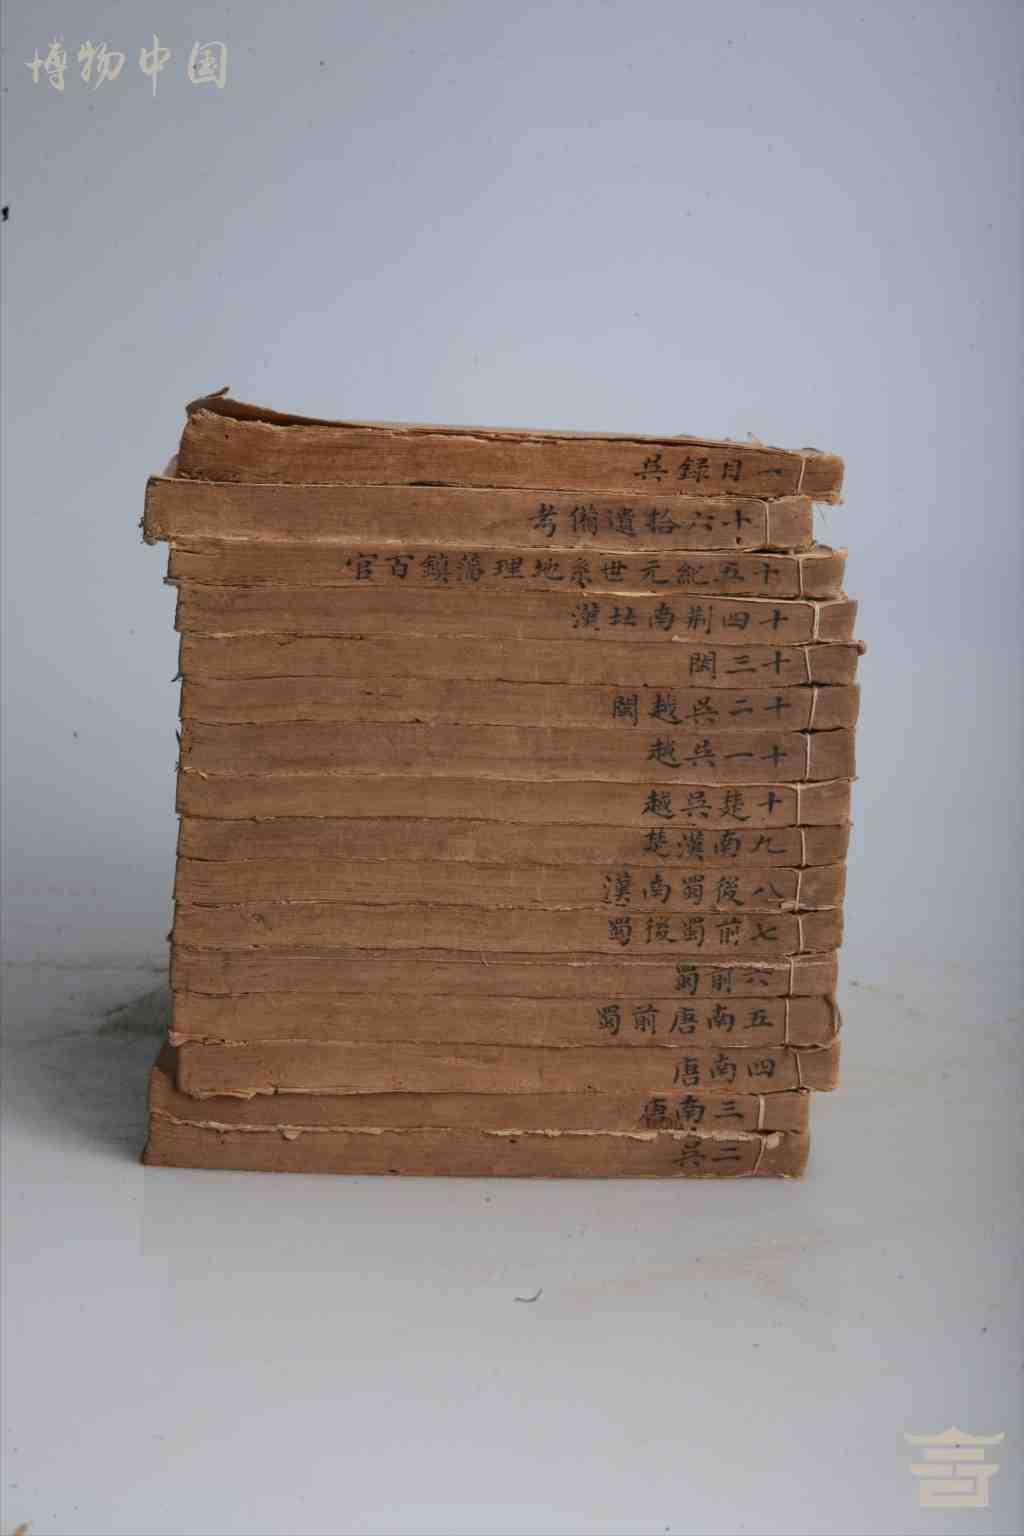 博物中国
一目録吳
十六拾遺備考
十五紀元世系地理藩鎮百官
十四荊南北漢
十三閩
十二吳越閩
十一吳越
十楚吳越
九南漢楚
八後蜀南漢
七前蜀後蜀
六前蜀
五南唐前蜀
四南唐
三南唐
二吳